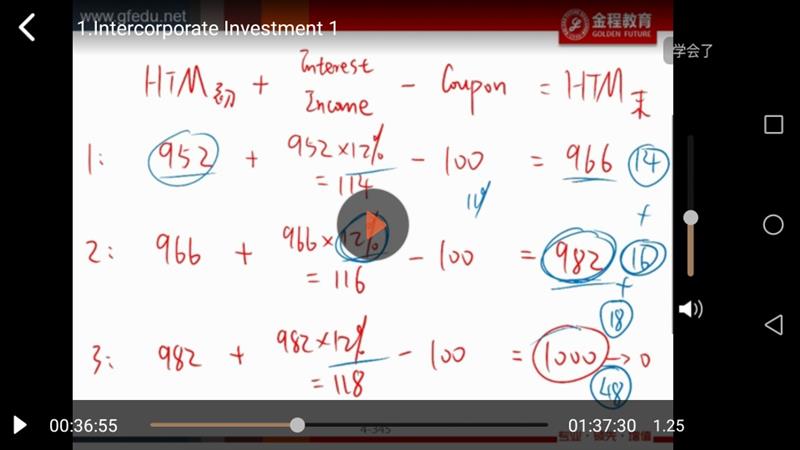 www.gfedu.net
1.Intercorporate Investment 1
金程教育
GOLDEN FUTURE
学会了
HTM初 + Interest Income - Coupon = HTM末
1: 952 + 952×12% - 100 = 966 14
= 114
11%
+
2: 966 + 966×12% - 100 = 982 16
= 116
+
18
3: 982 + 982×12% - 100 = 1000 → 0
= 118
48
00:36:55
01:37:30
1.25
4-345
专业·领先·增值